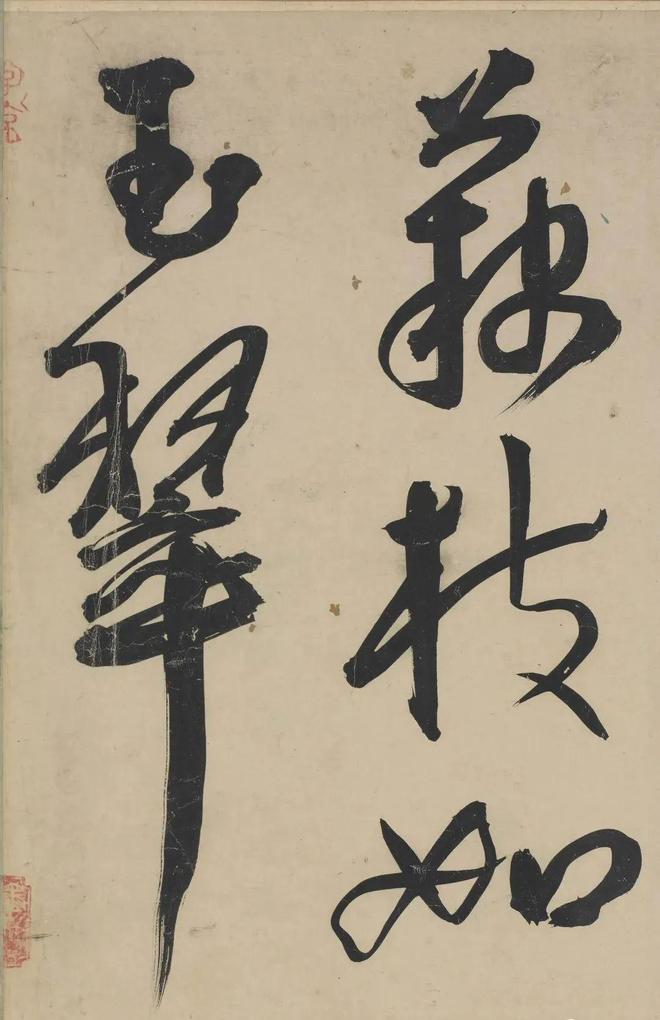 藕枝如
玉翠